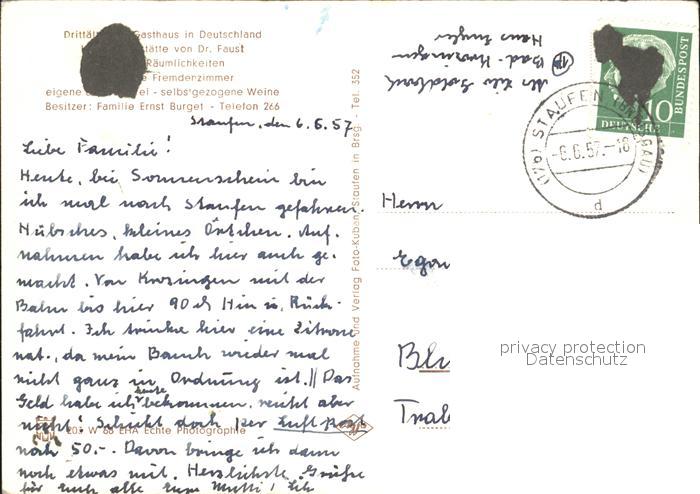 Drittält Gasthaus in Deutschland
stätte von Dr. Faust
Räumlichkeiten
Fremdenzimmer
eigene el - selbstgezogene Weine
Besitzer: Familie Ernst Burget - Telefon 266
Staufen, den 6.6.57
Liebe Familie!
Heute, bei Sonnenschein bin
ich mal nach Staufen gefahren.
Hübsches, kleines Örtchen. Auf-
nahmen habe ich hier auch ge-
macht. Von Krozingen mit der
Bahn bis hier 90 Hin u. Rück-
fahrt. Ich trinke hier eine Zitrone
nat., da mein Bauch wieder mal
nicht ganz in Ordnung ist. || Das
Geld habe ich heute bekommen, reicht aber
nicht! Schickt doch per Luftpost
noch 50.-. Davon bringe ich dann
noch etwas mit. Herzlichste Grüße
für Euch alle Eure Mutti! Ich
203 W 68 EHA Echte Photographie
Aufnahme und Verlag Foto-Kuben, Staufen in Brsg. - Tel. 352
Hans
Bad-Krozingen
DEUTSCHE BUNDESPOST
10
(17b) STAUFEN (BREISGAU)
-6.6.57.-18
d
Herrn
Egon
Bl
Trab
privacy protection
Datenschutz